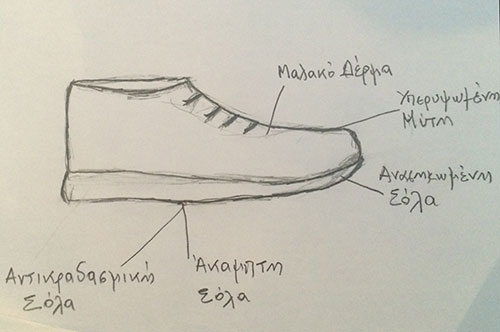 Μαλακό Δέρμα
Υπερυψωμένη
Μύτη
Ανασηκωμένη
Σόλα
Αντικραδασμική
Σόλα
Άκαμπτη
Σόλα